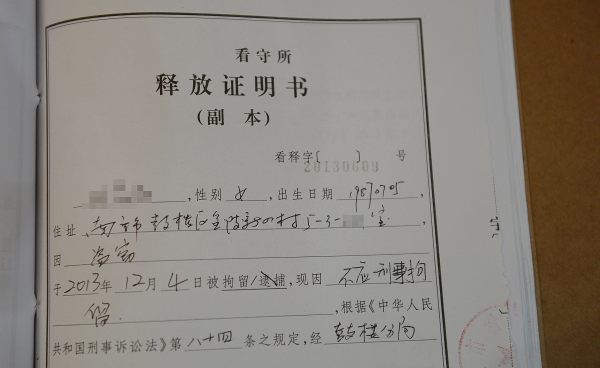 看守所
释放证明书
(副 本)
看释字〔 〕 号
20130609
，性别 女 ，出生日期 19870705 ，
住址 南京市鼓楼区金陵新村5-3- 室 ，
因 盗窃
于2013年 12 月 4 日被拘留/逮捕，现因 不应刑事拘
留. ，根据《中华人民
共和国刑事诉讼法》第 八十四 条之规定，经 鼓楼分局